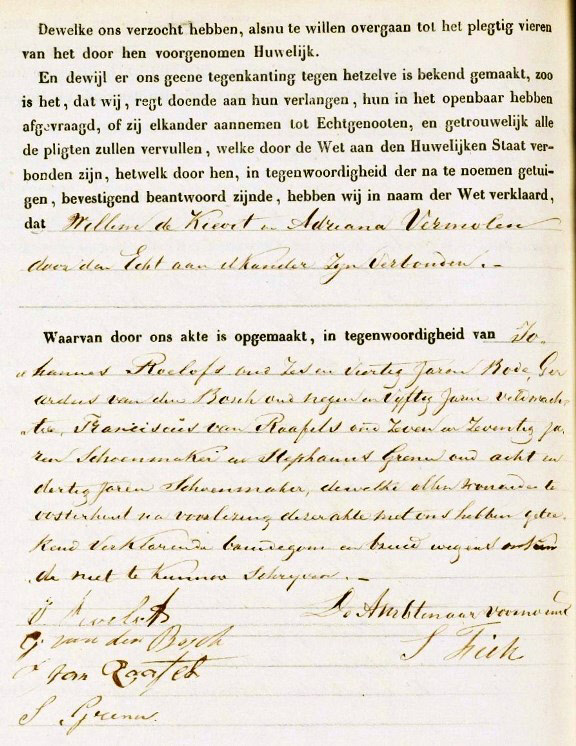 Dewelke ons verzocht hebben, alsnu te willen overgaan tot het plegtig vieren
van het door hen voorgenomen Huwelijk.
En dewijl er ons geene tegenkanting tegen hetzelve is bekend gemaakt, zoo
is het, dat wij, regt doende aan hun verlangen, hun in het openbaar hebben
afgevraagd, of zij elkander aannemen tot Echtgenooten, en getrouwelijk alle
de pligten zullen vervullen, welke door de Wet aan den Huwelijken Staat ver-
bonden zijn, hetwelk door hen, in tegenwoordigheid der na te noemen getui-
gen, bevestigend beantwoord zijnde, hebben wij in naam der Wet verklaard,
dat Willem de Kievit en Adriana Vermolen
door den Echt aan elkander zyn verbonden.-
Waarvan door ons akte is opgemaakt, in tegenwoordigheid van Jo-
hannes Roelofs oud Zes en Veertig Jaren Bode Ger
ardus van den Bosch oud negen en vyftig Jaren veldwach-
ter, Franciscus van Raafels oud Zeven en Zeventig Ja
ren Schoenmaker en Stephanus Grenen oud acht en
dertig Jaren Schoenmaker, dewelke allen wonende te
oosterhout na voorlezing dezer akte met ons hebben getee-
kend verklarende bruidegom en bruid wegens onkun
de niet te kunnen Schryven.-
J Roelofs De Ambtenaar voornoemd
G van den Bosch
J van Raafels
S Grenen